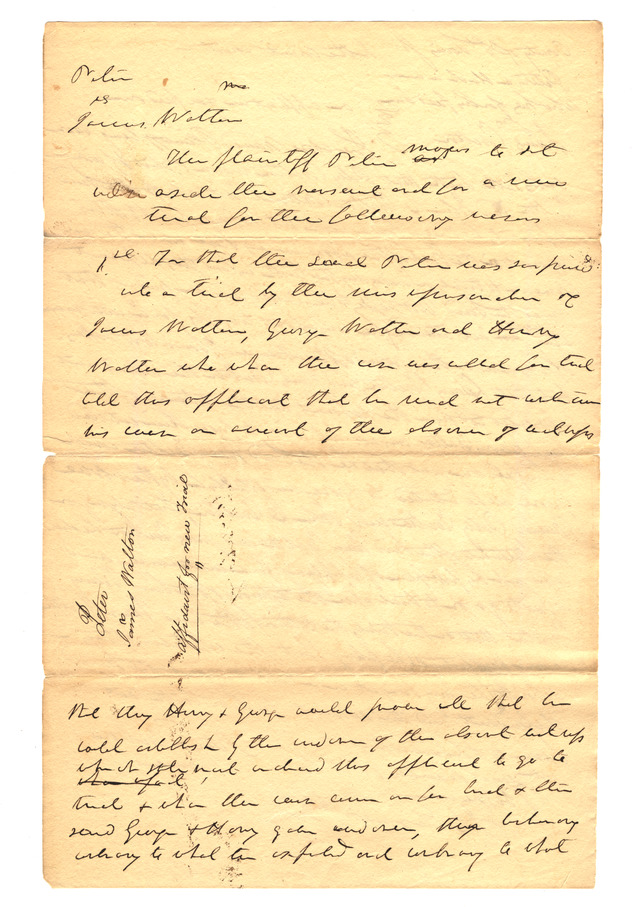 Peter
vs
James Walton
The plaintiff Peter moves to set
aside the nonsuit and for a new
trial for the following reasons
1st For that the said Peter was surprised
in a trial by the
James Walton, George Walton and Henry
Walton who when the case was called for trial
told this affiant that he need not continue
his cause on account of the absence of witness
Peter
vs
James Walton
affidavit for new Trial
that they Henry & George would prove all that he
could establish by the evidence of the absent witness
which induced this affiant to go to
trial & when the cause came on for trial & the
said George & Henry gave evidence, they
contrary to what he expected and contrary to what